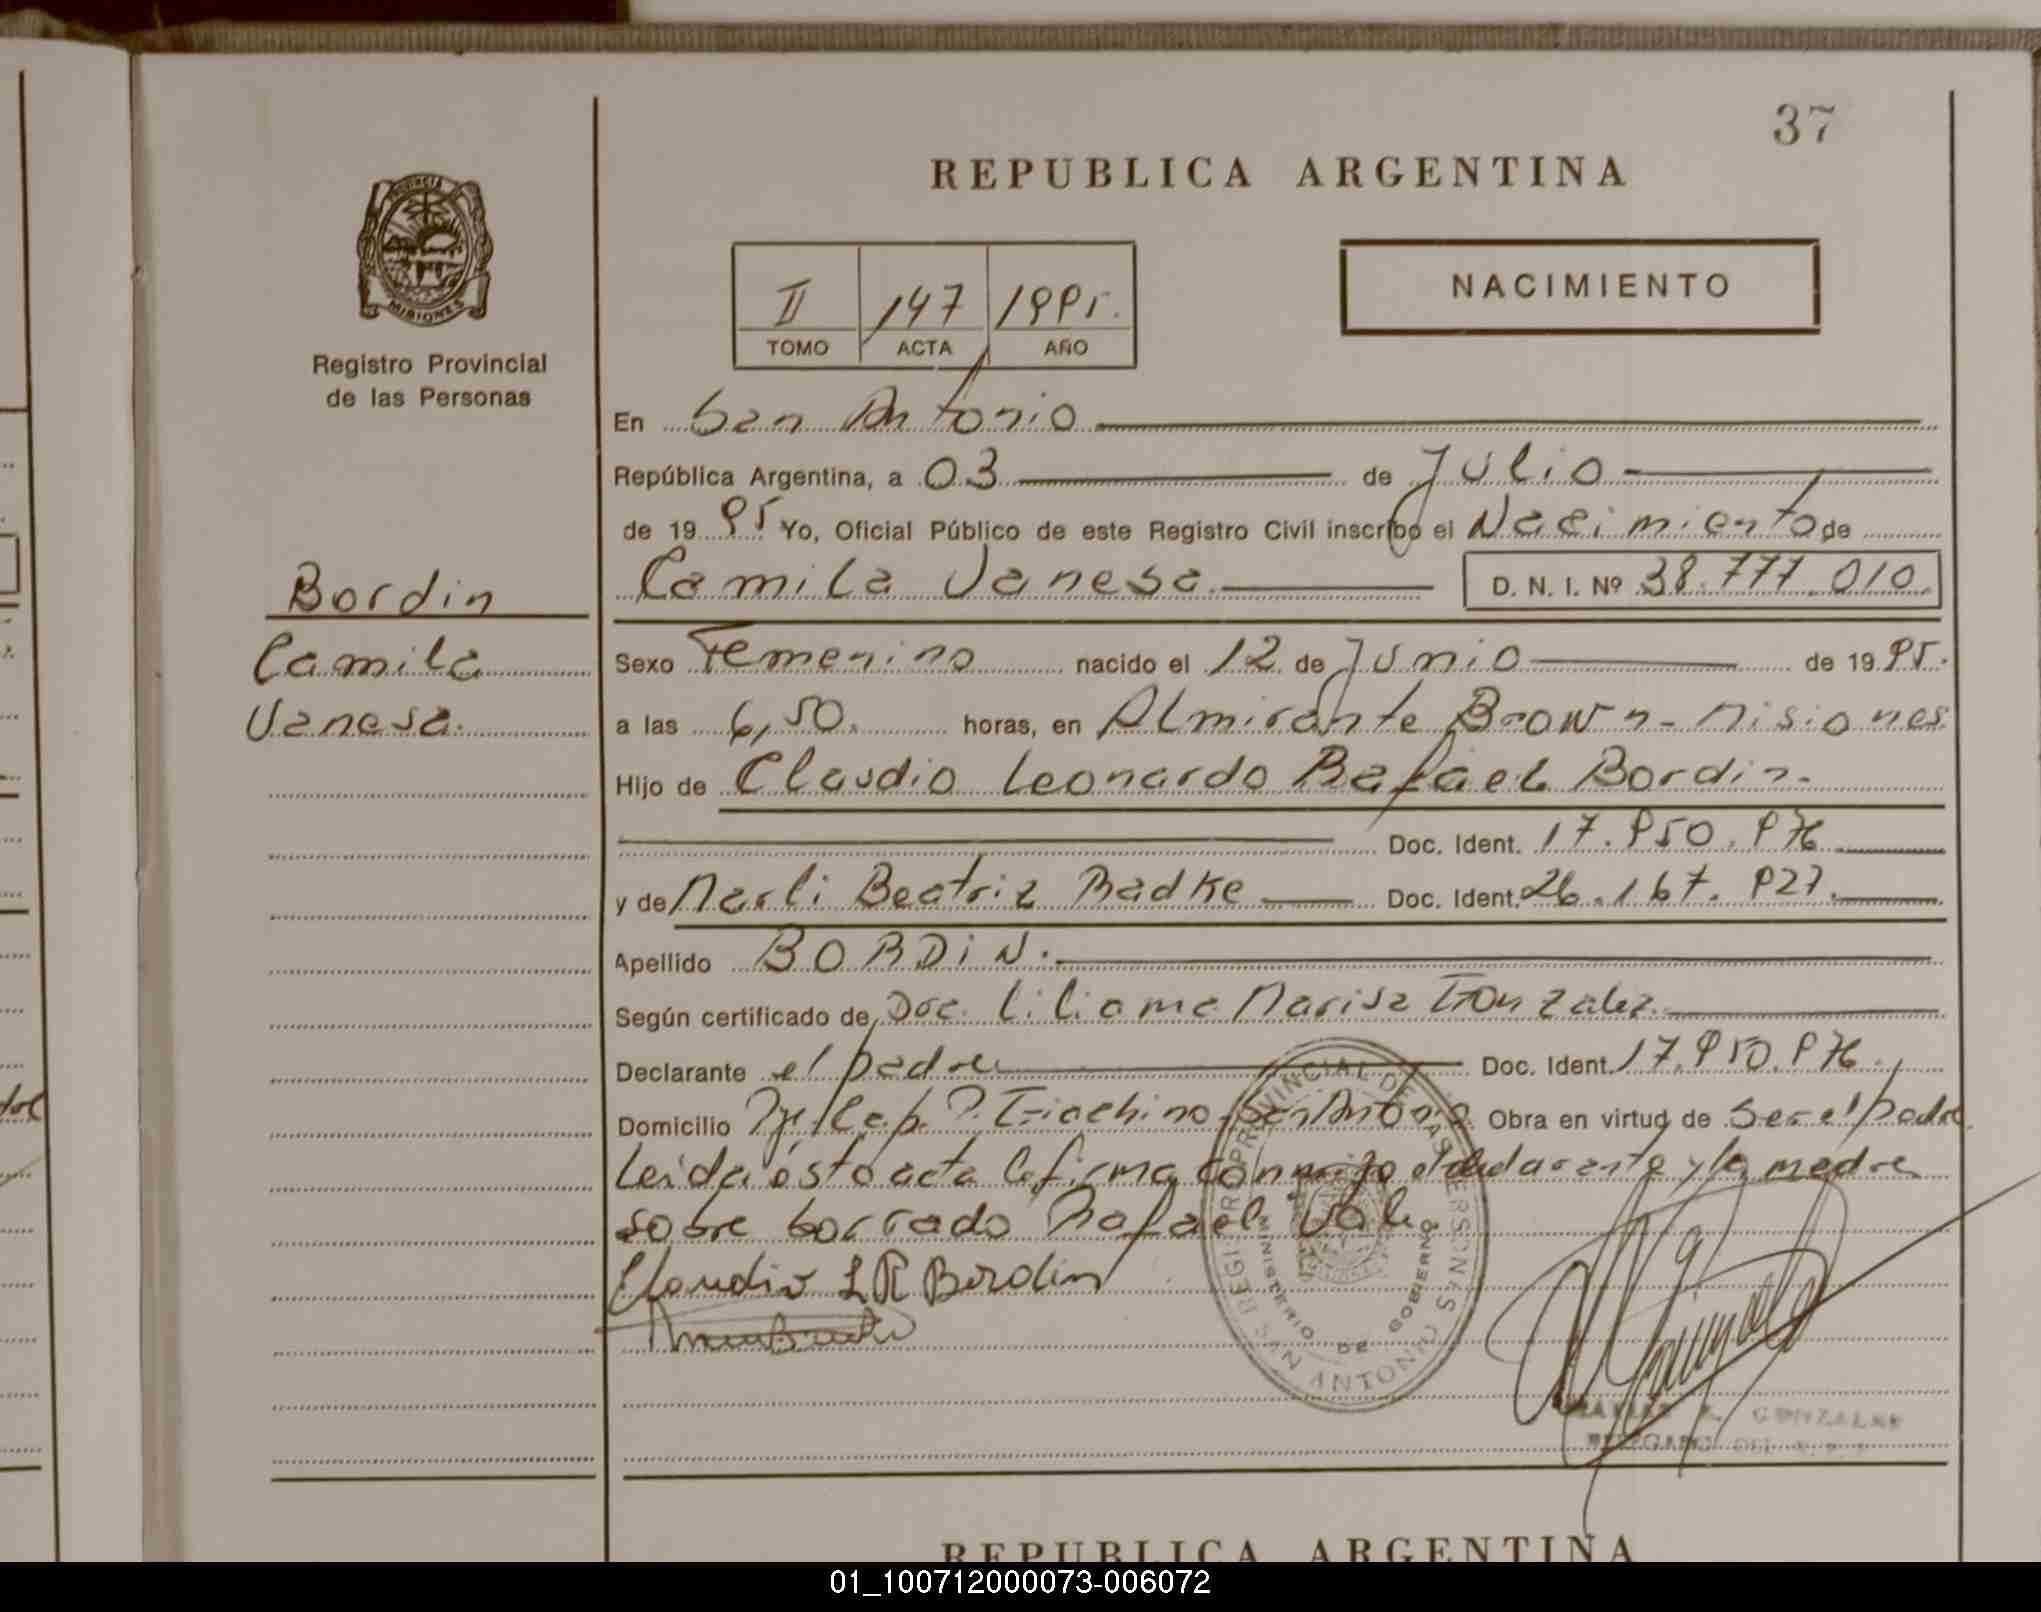 37
REPUBLICA ARGENTINA
PROVINCIA
MISIONES
Registro Provincial
de las Personas
II 147 1995.
TOMO ACTA AÑO
NACIMIENTO
En San Antonio
República Argentina, a 03 de Julio
de 19 95 Yo, Oficial Público de este Registro Civil inscribo el Nacimiento de
Camila Vanesa D. N. I. Nº 38.777.010.
Bordin
Camila
Vanesa.
Sexo Femenino nacido el 12 de Junio de 19 95.
a las 6,50. horas, en Almirante Brown - Misiones
Hijo de Claudio Leonardo Rafael Bordin.
Doc. Ident. 17.950.976
y de Marli Beatriz Radke Doc. Ident. 26.167.927.
Apellido BORDIN.
Según certificado de Doc. Liliana Marisa Gonzalez.
Declarante el padre Doc. Ident. 17.950.976.
Domicilio Cap. Giachino - San Antonio Obra en virtud de ser el padre
Leida ésta acta la firma conmigo el declarante y la madre
sobre borrado Rafael Vale
Claudio L R Bordin
REGISTRO PROVINCIAL DE LAS PERSONAS
MINISTERIO DE GOBIERNO
SAN ANTONIO
GONZALEZ
REPUBLICA ARGENTINA
01_100712000073-006072